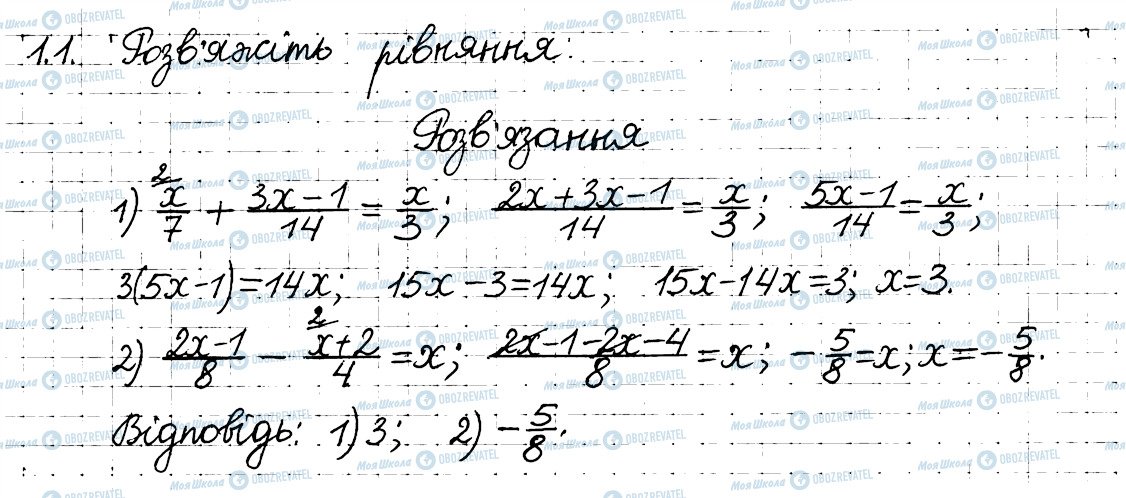 1.1. Розв'яжіть рівняння:
Розв'язання
1) ²⁄ x/7 + (3x-1)/14 = x/3; (2x+3x-1)/14 = x/3; (5x-1)/14 = x/3;
3(5x-1)=14x; 15x-3=14x; 15x-14x=3; x=3.
2) (2x-1)/8 - ²⁄ (x+2)/4 = x; (2x-1-2x-4)/8 = x; -5/8=x; x=-5/8.
Відповідь: 1) 3; 2) -5/8.